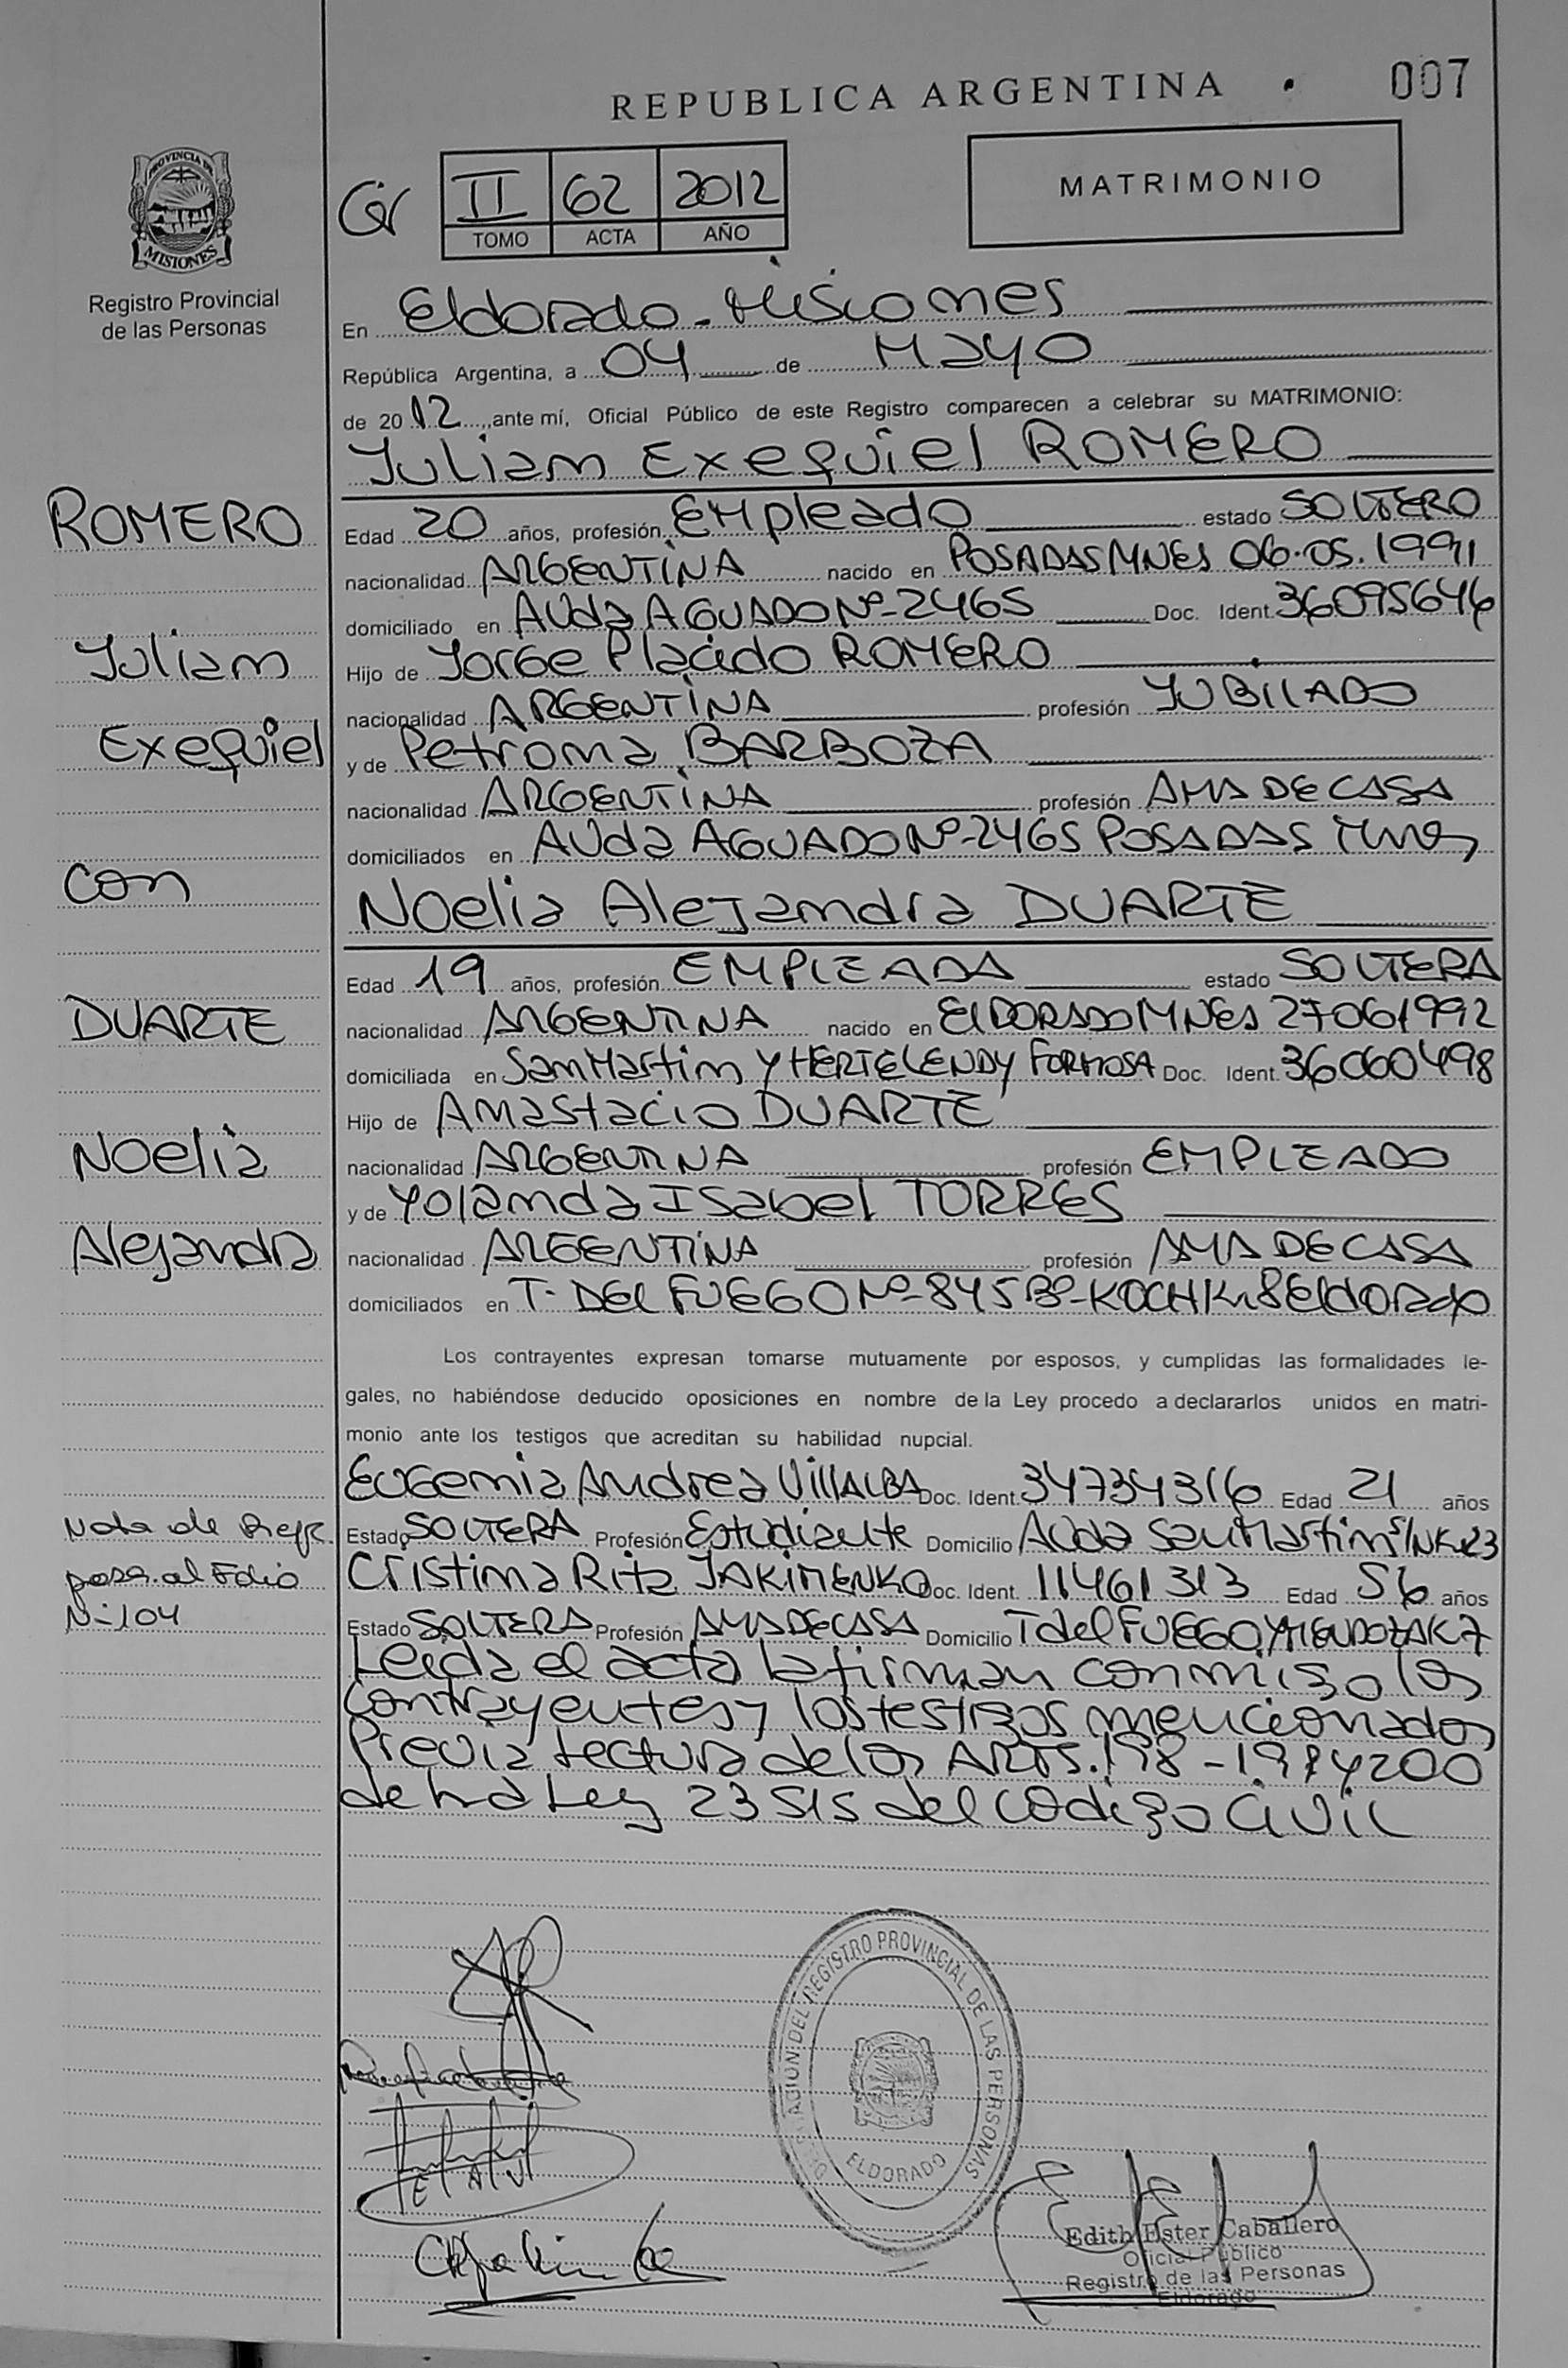 REPUBLICA ARGENTINA
007
PROVINCIA DE
MISIONES
Registro Provincial
de las Personas
Cir II 62 2012
TOMO ACTA AÑO
MATRIMONIO
En Eldorado - Misiones
República Argentina, a 04 de Mayo
de 2012, ante mí, Oficial Público de este Registro comparecen a celebrar su MATRIMONIO:
Julian Exequiel ROMERO
ROMERO
Edad 20 años, profesión Empleado estado SOLTERO
nacionalidad ARGENTINA nacido en POSADAS MNES 06.05.1991
domiciliado en AVda AGUADO Nº 2465 Doc. Ident. 36095646
Julian
Hijo de Jorge Placido ROMERO
nacionalidad ARGENTINA profesión JUBILADO
Exequiel
y de Petrona BARBOZA
nacionalidad ARGENTINA profesión AMA DE CASA
domiciliados en AVda AGUADO Nº 2465 POSADAS Mnes
con
Noelia Alejandra DUARTE
Edad 19 años, profesión EMPLEADA estado SOLTERA
DUARTE
nacionalidad ARGENTINA nacido en ElDORADO MNES 27061992
domiciliada en San Martin Y HERTELENDY FORMOSA Doc. Ident. 36060498
Hijo de Anastacio DUARTE
Noelia
nacionalidad ARGENTINA profesión EMPLEADO
y de Yolanda Isabel TORRES
Alejandra
nacionalidad ARGENTINA profesión AMA DE CASA
domiciliados en T. DEl FUEGO Nº 845 Bº KOCH Km 8 Eldorado
Los contrayentes expresan tomarse mutuamente por esposos, y cumplidas las formalidades le-
gales, no habiéndose deducido oposiciones en nombre de la Ley procedo a declararlos unidos en matri-
monio ante los testigos que acreditan su habilidad nupcial.
Eugenia Andrea VillALBA Doc. Ident. 34734316 Edad 21 años
Nota de Refe.
Estado SOLTERA Profesión Estudiante Domicilio AVda San Martin S/N K23
pasa al Folio
Cristina Rita JAKIMENKO Doc. Ident. 11461313 Edad 56 años
Nº 104
Estado SOLTERA Profesión AMA DE CASA Domicilio T del FUEGO Y MENDOZA K7
Leida el acta la firman conmigo los
contrayentes y los testigos mencionados
Previa Lectura de los ARTS. 198 - 199 y 200
de la Ley 23515 del codigo Civil
DELEGACION DEL REGISTRO PROVINCIAL DE LAS PERSONAS
ELDORADO
E A V
Edith Ester Caballero
Oficial Público
Registro de las Personas
Eldorado